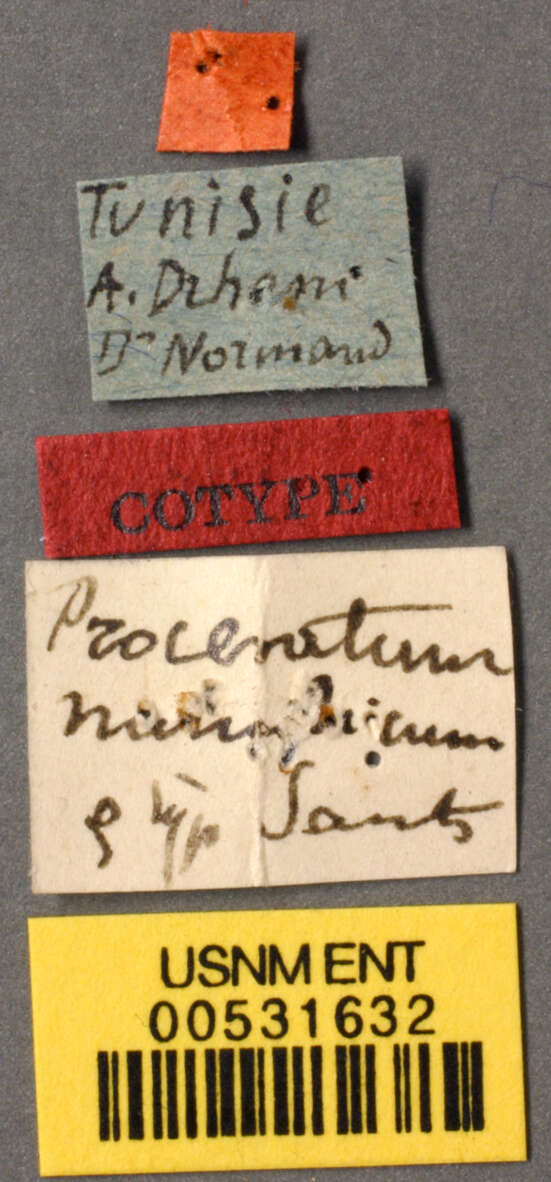 Tunisie
A. Drham
Dr Normand
COTYPE
Proceratium
numidicum
☿ typ Sants
USNM ENT
00531632